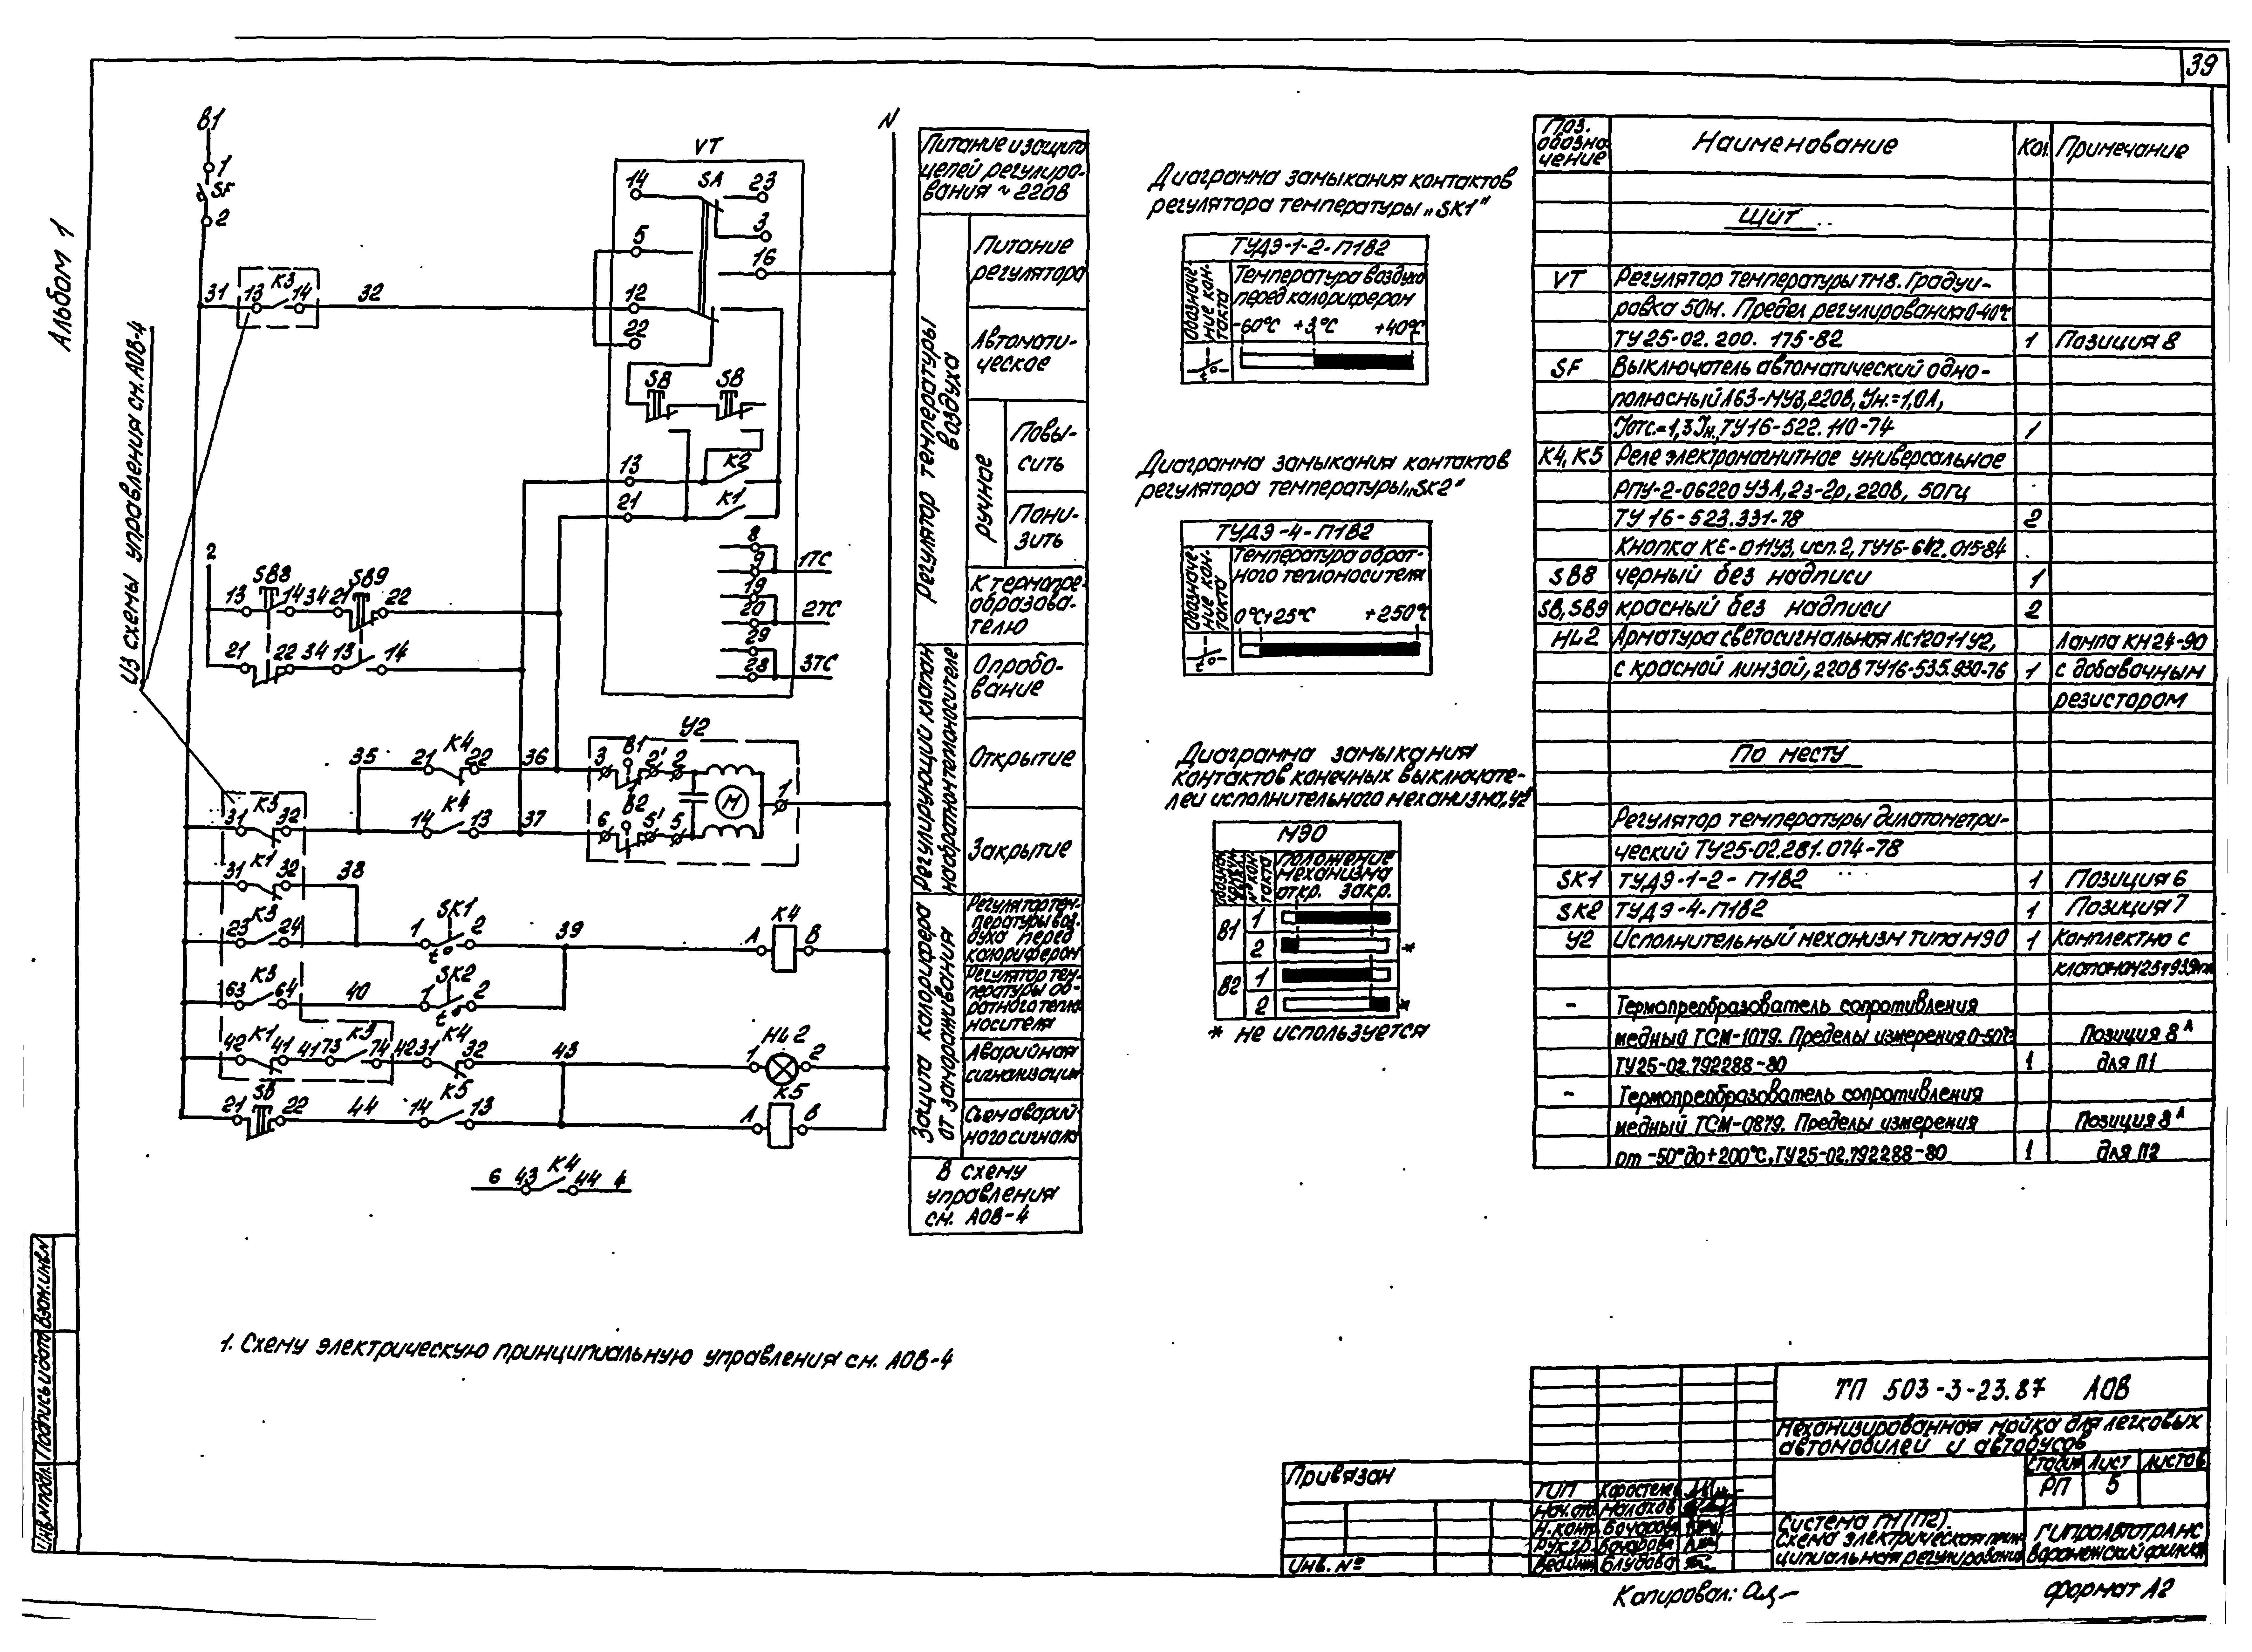 39
Альбом 1
В1
1
SF
2
31
13
К3
14
32
Из схемы управления см. АОВ-4
N
VT
14
SA
23
3
5
16
12
22
SB
SB
13
К2
21
К1
8
9
1ТС
19
20
2ТС
29
28
3ТС
2
13
SB8
14
34
21
SB9
22
21
22
34
13
14
35
21
К4
22
36
3
В1
2'
2
У2
М
1
31
К3
32
14
К4
13
37
6
В2
5'
5
31
К1
32
38
23
К3
24
1
SK1
2
t°
39
А
К4
В
63
К3
64
40
1
SK2
2
t°
42
К1
41
41
73
К3
74
42
31
К4
32
43
1
HL2
2
21
SB
22
44
14
К5
13
А
К5
В
6
43
К4
44
4
Питание и защита
цепей регулиро-
вания ~220В
Регулятор температуры
воздуха
Питание
регулятора
Автомати-
ческое
ручное
Повы-
сить
Пони-
зить
К термопре-
образова-
телю
Регулирующий клапан
на обратном теплоносителе
Опробо-
вание
Открытие
Закрытие
Защита калорифера
от замораживания
Регулятор тем-
пературы воз-
духа перед
калорифером
Регулятор тем-
пературы об-
ратного тепло-
носителя
Аварийная
сигнализация
Съем аварий-
ного сигнала
В схему
управления
см. АОВ-4
Диаграмма замыкания контактов
регулятора температуры „SK1"
ТУДЭ-1-2-П1В2
Обозначе-
ние кон-
такта
Температура воздуха
перед калорифером
-60°С +3°С +40°С
Диаграмма замыкания контактов
регулятора температуры „SK2"
ТУДЭ-4-П1В2
Обозначе-
ние кон-
такта
Температура обрат-
ного теплоносителя
0°С +25°С +250°С
Диаграмма замыкания
контактов конечных выключате-
лей исполнительного механизма „У2"
МЭО
№ кон-
такта
Положение
механизма
откр. закр.
В1
1
2
*
В2
1
2
*
* не используется
Поз.
обозна-
чение
Наименование
Кол.
Примечание
Щит
VT Регулятор температуры ТМ8. Градуи-
ровка 50М. Предел регулирования 0-40°С
ТУ25-02.200.175-82 1 Позиция 8
SF Выключатель автоматический одно-
полюсный А63-МУ3, 220В, Iн.=1,0А,
Iотс.=1,3Iн., ТУ16-522.110-74 1
К4, К5 Реле электромагнитное универсальное
РПУ-2-06220У3А, 2з-2р, 220В, 50Гц
ТУ 16-523.331-78 2
Кнопка КЕ-011У3, исп.2, ТУ16-642.015-84
SB8 черный без надписи 1
SB, SB9 красный без надписи 2
HL2 Арматура светосигнальная АС12011У2, Лампа КН24-90
с красной линзой, 220В ТУ16-535.930-76 1 с добавочным
резистором
По месту
Регулятор температуры дилатометри-
ческий ТУ25-02.281.074-78
SK1 ТУДЭ-1-2-П1В2 1 Позиция 6
SK2 ТУДЭ-4-П1В2 1 Позиция 7
У2 Исполнительный механизм типа МЭО 1 Комплектно с
- Термопреобразователь сопротивления
медный ТСМ-1079. Пределы измерения 0-50°С Позиция 8А
ТУ25-02.792288-80 1 для П1
- Термопреобразователь сопротивления
медный ТСМ-0879. Пределы измерения Позиция 8А
от -50° до +200°С, ТУ25-02.792288-80 1 для П2
1. Схему электрическую принципиальную управления см. АОВ-4
Инв.№ подл. Подпись и дата Взам.инв.№
Привязан
Инв. №
ТП 503-3-23.87 АОВ
Механизированная мойка для легковых
автомобилей и автобусов
Стадия Лист Листов
РП 5
ГИП
Нач.отд. Малахов
Н.контр. Бочарова
Рук.гр. Бочарова
Вед.инж. Блудова
Система П1(П2).
Схема электрическая прин-
ципиальная регулирования
Гипроавтотранс
Воронежский филиал
Копировал:
формат А2